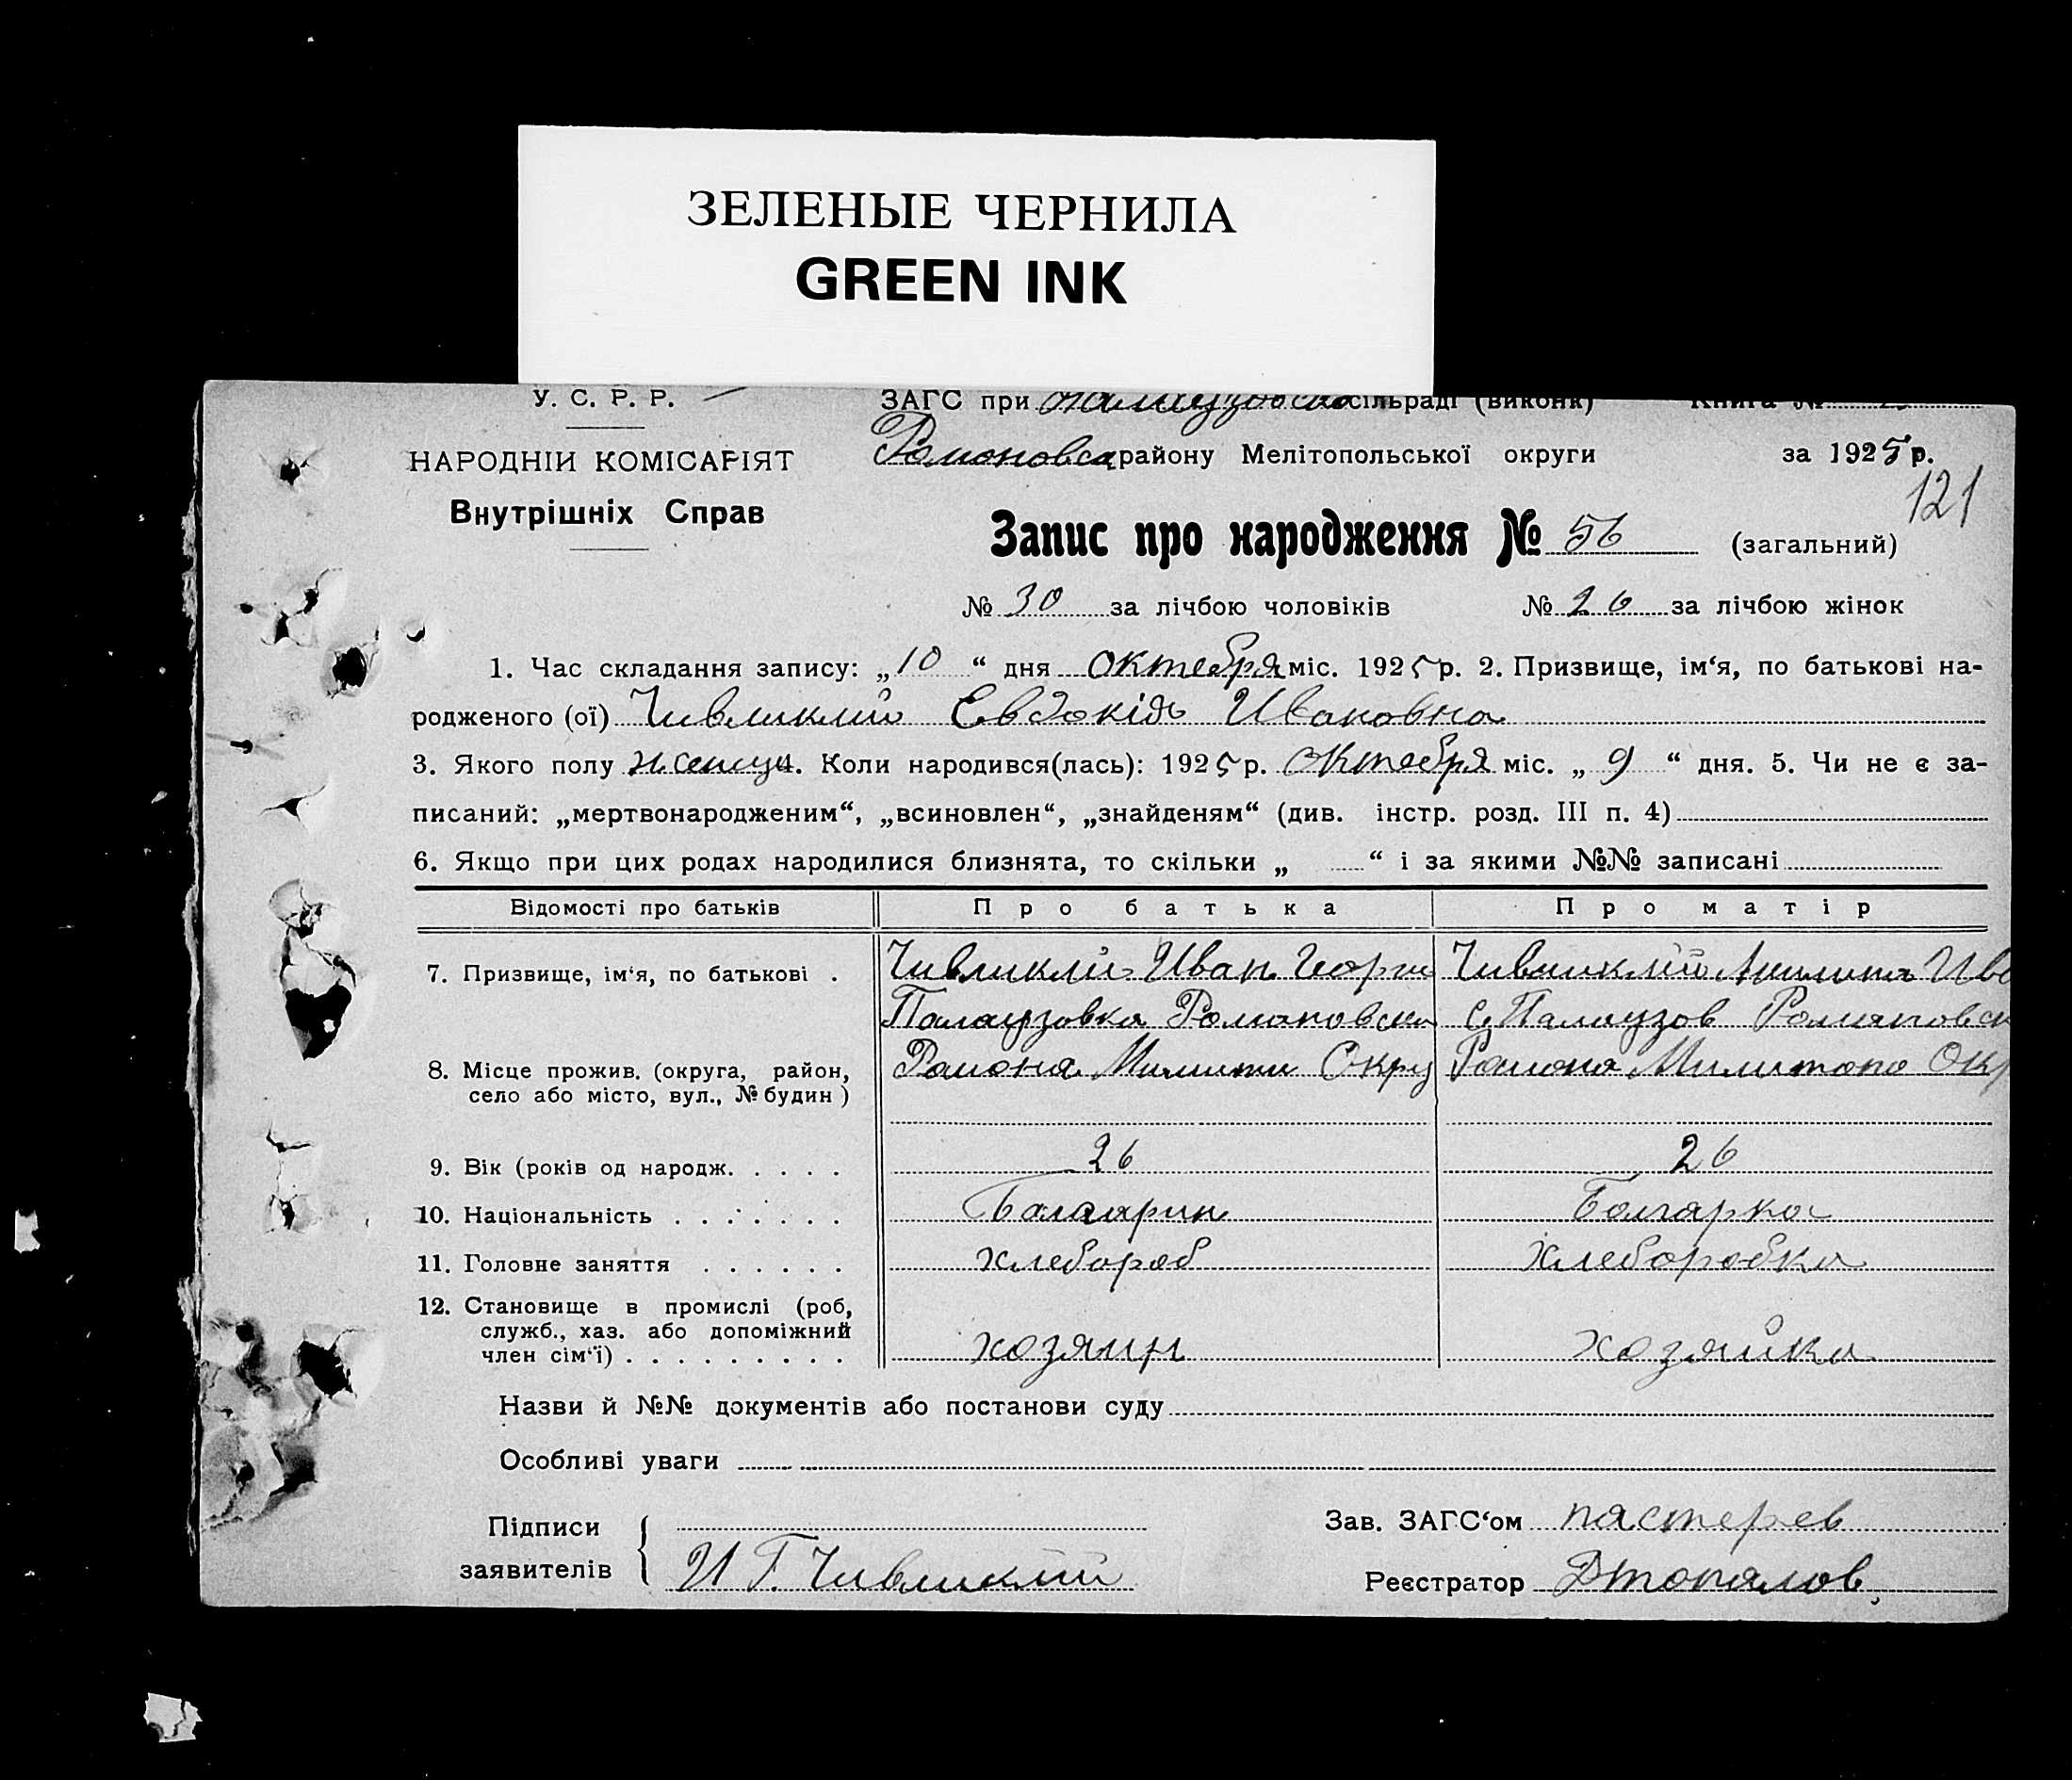 ЗЕЛЕНЫЕ ЧЕРНИЛА
GREEN INK
У. С. Р. Р.
ЗАГС при Палаузовской сільраді (виконк) Книга №
НАРОДНІЙ КОМІСАРІЯТ
Романовск району Мелітопольської округи за 1925 р.
121
Внутрішніх Справ
Запис про народження № 56 (загальний)
№ 30 за лічбою чоловіків № 26 за лічбою жінок
1. Час складання запису: „10“ дня октебря міс. 1925 р. 2. Призвище, ім‘я, по батькові на-
родженого (ої) Чивликлий Евдокія Ивановна
3. Якого полу женщи. Коли народився(лась): 1925 р. октебря міс. „9“ дня. 5. Чи не є за-
писаний: „мертвонародженим“, „всиновлен“, „знайденям“ (див. інстр. розд. III п. 4)
6. Якщо при цих родах народилися близнята, то скільки „ “ і за якими №№ записані
Відомості про батьків Про батька Про матір
7. Призвище, ім‘я, по батькові . Чивликлий Иван Георги Чивликлий Ива
Палаузовка Романовска с. Палаузов Романовск
8. Місце прожив. (округа, район, село або місто, вул., № будин) Района Милити Окру Района Милитопо Окр
9. Вік (років од народж. . . . . 26 26
10. Національність . . . . . . . Балгарин Болгарка
11. Головне заняття . . . . . . хлебороб хлеборобка
12. Становище в промислі (роб,
служб., хаз. або допоміжний
член сім‘ї) . . . . . . . . . хозяин хозяйка
Назви й №№ документів або постанови суду
Особливі уваги
Підписи Зав. ЗАГС‘ом пастерев
заявителів И Г. Чивликлий Реєстратор Д Топалов